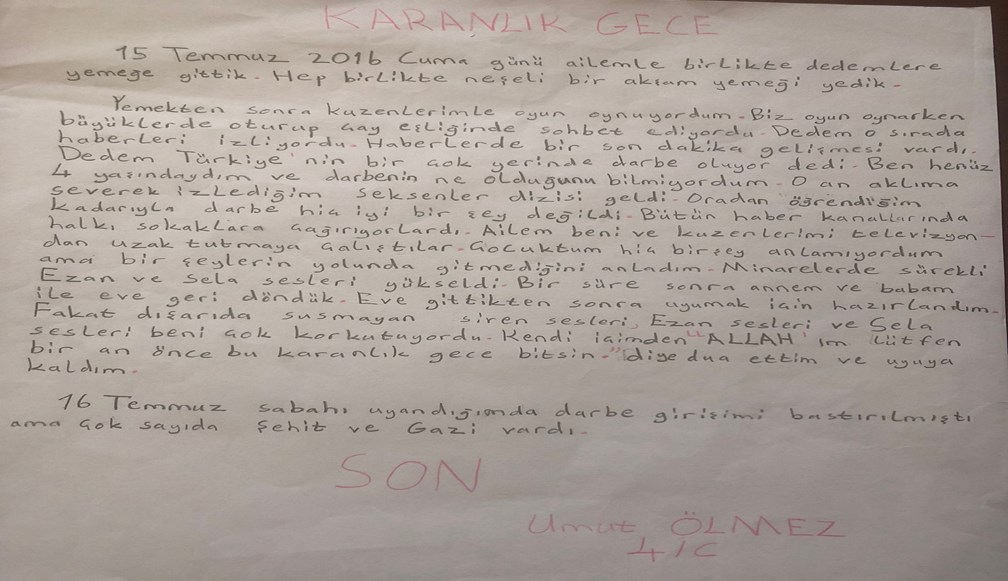 KARANLIK GECE
15 Temmuz 2016 Cuma günü ailemle birlikte dedemlere
yemeğe gittik. Hep birlikte neşeli bir akşam yemeği yedik.
Yemekten sonra kuzenlerimle oyun oynuyordum. Biz oyun oynarken
büyüklerde oturup çay eşliğinde sohbet ediyordu. Dedem o sırada
haberleri izliyordu. Haberlerde bir son dakika gelişmesi vardı.
Dedem Türkiye'nin bir çok yerinde darbe oluyor dedi. Ben henüz
4 yaşındaydım ve darbenin ne olduğunu bilmiyordum. O an aklıma
severek izlediğim seksenler dizisi geldi. Oradan öğrendiğim
kadarıyla darbe hiç iyi bir şey değildi. Bütün haber kanallarında
halkı sokaklara çağırıyorlardı. Ailem beni ve kuzenlerimi televizyon-
dan uzak tutmaya çalıştılar. Çocuktum hiç birşey anlamıyordum
ama bir şeylerin yolunda gitmediğini anladım. Minarelerde sürekli
Ezan ve Sela sesleri yükseldi. Bir süre sonra annem ve babam
ile eve geri döndük. Eve gittikten sonra uyumak için hazırlandım.
Fakat dışarıda susmayan siren sesleri, Ezan sesleri ve Sela
sesleri beni çok korkutuyordu. Kendi içimden "ALLAH'ım lütfen
bir an önce bu karanlık gece bitsin." diye dua ettim ve uyuya
kaldım.
16 Temmuz sabahı uyandığımda darbe girişimi bastırılmıştı
ama çok sayıda Şehit ve Gazi vardı.
SON
Umut ÖLMEZ
4/C